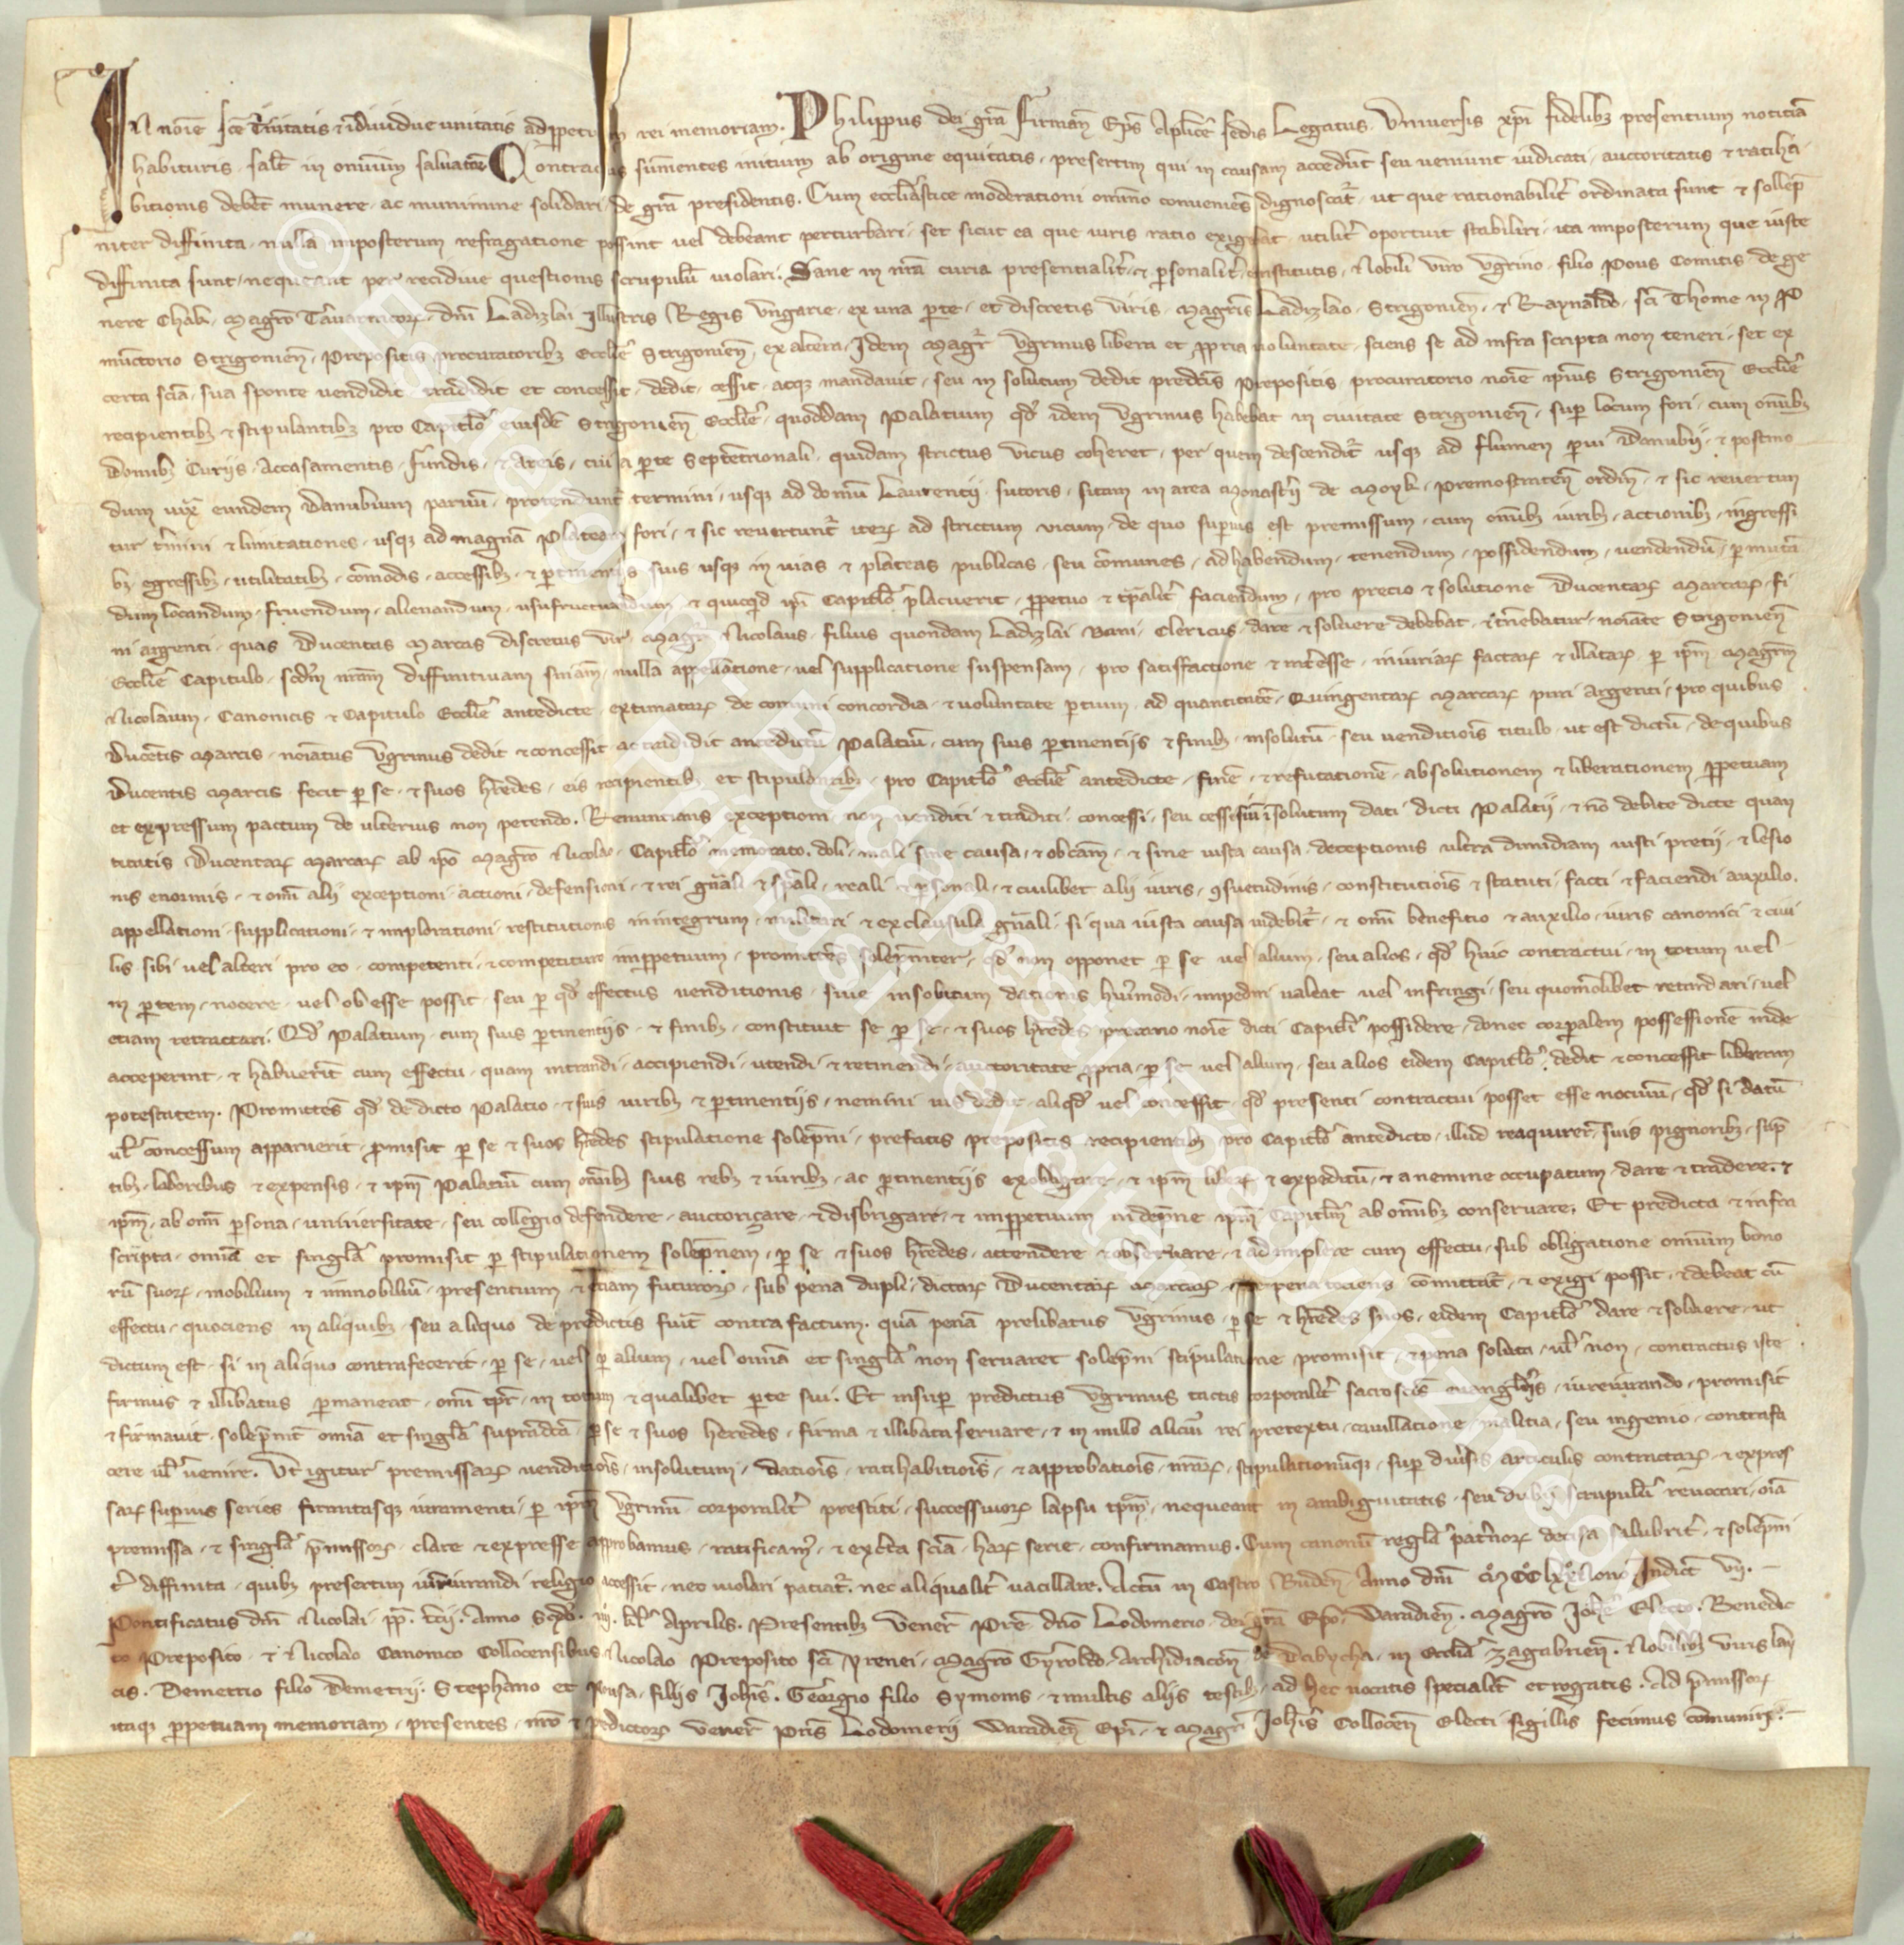 In noīe sc̄e Trinitatis & īdiuidue unitatis ad ꝑpetuam rei memoriam. Philippus dei grā Firman̄ Ep̄s Ap̄lice sedis Legatus. Vniuersis xp̄i fidelibꝫ presentium noticiā
habituris salt̄ in omnium saluatore Contractus sumentes initium ab origine equitatis, presertim qui in causam accedūt seu ueniunt iudicati, auctoritatis & ratiha
bitionis debēt munere ac munimine solidari de grā presidentis. Cum eccl̄iastice moderationi omnino conueniens dignoscat̄, ut que rationabilit̄ ordinata sunt & sollep̄
niter diffinita, nulla imposterum refragatione possint uel debeant perturbari, set sicut ea que iuris ratio exigebat utilit̄ oportuit stabiliri, ita imposterum que iuste
diffinita sunt, nequeant per recidiue questionis scrupulū uiolari. Sane in nr̄a curia presentialit̄ & ꝑsonalit̄ constitutis, Nobili viro Vgrino filio Pous Comitis de ge
nere Chak, Magr̄o Tauarnicoꝝ dn̄i Ladizlai Illustris Regis Vngarie ex una ꝑte, et discretis viris magr̄is Ladizlao Strigonien̄ & Raynaldo sc̄i Thome in P
mūctorio Strigonien̄ Prepositis procuratoribꝫ Eccl̄ie Strigonien̄ ex altera, Idem Magr̄ Vgrinus libera et ꝓpria uoluntate, sciens se ad infra scripta non teneri, set ex
certa sciā sua sponte uendidit tradidit et concessit, dedit, cessit, atqꝫ mandauit, seu in solutum dedit predc̄is Prepositis procuratorio noīe ipsius Strigonien̄ Eccl̄ie
recipientibꝫ & stipulantibꝫ pro Capitl̄o eiusdē Strigonien̄ Eccl̄ie quoddam Palatium qd̄ idem Vgrinus habebat in ciuitate Strigonien̄ suꝑ locum fori, cum omībꝫ
domibꝫ Curijs, Accasamentis, fundis, & Areis, cui a ꝑte Septētrionali quidam strictus vicus coheret, per quem descendit̄ usqꝫ ad flumen ꝑui Danubij, & postmo
dum iuxta eundem Danubium paruū, protendunt̄ termini, usqꝫ ad domū Laurentij sutoris, sitam in area Monastr̄ij de Moyk, Premostraten̄ ordin̄, & sic reuertun
tur t̄mini & limitationes, usqꝫ ad magnā Plateam fori, & sic reuertunt̄ iteꝝ ad strictum vicum, de quo suꝑius est premissum, cum omībꝫ iuribꝫ, actionibꝫ, ingressi
bꝫ, egressibꝫ, utilitatibꝫ, cōmodis, accessibꝫ, & ꝑtinentijs suis usqꝫ in uias & plateas publicas, seu cōmunes, ad habendum, tenendum, possidendum, uendendū, ꝑmutā
dum locandum, fruendum, alienandum, usufructuandum & quicqd̄ ipi Capitl̄o placuerit, ꝑpetuo & t̄palit̄ faciendum, pro precio & solutione Ducentaꝝ Marcaꝝ fi
ni argenti, quas Ducentas Marcas discretus vir Magr̄ Nicolaus filius quondam Ladizlai Bani, Clericus dare & soluere debebat & tēnebatur, noīate Strigonien̄
Eccl̄ie Capitulo, scd̄m nr̄am diffinitiuam sn̄iam, nulla appellatione, uel supplicatione suspensam, pro satisfactione & intēsse, iniuriaꝝ factaꝝ & illataꝝ ꝑ ipm̄ Magr̄m
Nicolaum, Canonicis & Capitulo Eccl̄ie antedicte, extimataꝝ de comuni concordia & uoluntate ꝑtium, ad quantitatē Quingentaꝝ Marcaꝝ puri argenti, pro quibus
Ducētis Marcis, noīatus Vgrinus dedit & concessit ac tradidit antedictū Palatiū, cum suis ꝑtinentijs & finibꝫ, insolutū, seu uenditiois titulo, ut est dictū, de quibus
Ducentis Marcis fecit ꝑ se & suos h̄redes, eis recipientibꝫ et stipulantibꝫ pro Capitl̄o Eccl̄ie antedicte, finē, & refutationē, absolutionem & liberationem ꝑpetuam
et expressum pactum de ulterius non petendo. Renuncians exceptioni non uenditi & traditi concessi, seu cessi siū īsolutum dati dicti Palatij, & nō debite dicte quan
titatis Ducentaꝝ Marcaꝝ ab ipo Magr̄o Nicolao, Capitl̄o memorato, doli mali sine causa, & ob cām, & sine iusta causa, deceptionis ultra dimidiam iusti pretij, & lesio
nis enormis, & om̄i alij exceptioni, actioni, defensioni, & rei gn̄ali & sp̄ali, reali & ꝑsonali, & cuilibet alij iuris, ꝯsuetudinis, constitutiois & statuti, facti & faciendi auxilio,
appellationi, supplicationi, & implorationi, restitutionis inintegrum, militari & ex clausula gn̄ali, si qua iusta causa uidebit̄, & om̄i benefitio & auxilio, iuris canonici & ciui
lis, sibi uel alteri pro eo competenti, & competituro imꝑpetuum, promittēs solep̄niter, qd̄ non opponet ꝑ se uel alium, seu alios, qd̄ huic contractui, in totum uel
in ꝑtem, nocere, uel obesse possit, seu ꝑ qd̄ effectus uenditionis, siue insolutum dationis hui᷒modi, impediri ualeat uel infringi, seu quomōlibet retardari, uel
etiam retractari. Qd̄ Palatium cum suis ꝑtinentijs, & finibꝫ, constituit se ꝑ se, & suos h̄redes precario noīe dicti Capitl̄i possidere, donec corꝑalem possessionē inde
acceperint, & habuerīt cum effectu, quam intrandi, accipiendi, utendi, & retinendi, auctoritate ꝓpria, ꝑ se uel alium, seu alios eidem Capitl̄o, dedit & concessit liberam
potestatem. Promittēs qd̄ de dicto Palatio, & suis iuribꝫ & ꝑtinentijs, nemini ius dedit aliqd̄ uel concessit, qd̄ presenti contractui posset esse nociuū, qd̄ si datū
ul̄ concessum apparuerit, ꝓmisit ꝑ se & suos h̄redes stipulatione solep̄ni, prefatis prepositis recipientibꝫ pro Capitl̄o antedicto, illud reaquirere, suis pignoribꝫ, sūp
tibꝫ, laboribus & expensis, & ipm̄ Palatiū cum om̄ibꝫ suis rebꝫ & iuribꝫ, ac ꝑtinentijs exobligare, & ipm̄ libeꝝ & expeditū, & a nemine occupatum, dare & tradere, &
ipm̄, ab om̄i ꝑsona, uniuersitate, seu collegio defendere, auctoriçare, & disbrigare, & imꝑpetuum indep̄ne ipm̄ Capitl̄m ab omībꝫ conseruare. Et predicta & infra
scripta, omīa et singl̄a promisit ꝑ stipulationem solep̄nem, ꝑ se & suos h̄redes, attendere & obseruare, & adimplere cum effectu, sub obligatione omnium bono
rū suoꝝ, mobilium & immobiliū, presentium & etiam futuroꝝ, sub pena dupli, dictaꝝ Ducentaꝝ Marcaꝝ, que pena tociens cōmittat̄, & exigi possit, & debeat cū
effectu, quociens in aliquibꝫ, seu aliquo de predictis fuīt contra factum. quā penā prelibatus Vgrinus, ꝑ se & h̄redes suos, eidem Capitl̄o dare & soluere, ut
dictum est, si in aliquo contrafecerit, ꝑ se, uel ꝑ alium, uel omīa et singl̄a non seruaret solep̄ni stipulatione promisit, & pena soluta, ul̄ non, contractus iste
firmus & illibatus ꝑmaneat, om̄i tpr̄e, in totum & qualibet ꝑte sui. Et insuꝑ predictus Vgrinus tactis corꝑalit̄ sacrosc̄is euangl̄ijs, iureiurando, promisit
& firmauit, solep̄nit̄ omīa et singl̄a supradc̄a, ꝑ se & suos heredes, firma & illibata seruare, & in nullo alicui᷒ rei pretextu, cauillatione, malitia, seu ingenio, contrafa
cere ul̄ uenire. Vt igitur premissaꝝ uenditiois, insolutum, datiois, ratihabitiois, & approbatiois, nr̄aꝝ, stipulationūqꝫ, suꝑ diūsis articulis contractaꝝ, & expres
saꝝ suꝑius series, firmitasqꝫ iuramenti, ꝑ ipm̄ Vgrinū corꝑalit̄ prestiti, successiuoꝝ lapsu tpm̄, nequeant in ambiguitatis, seu dubij scrupulū reuocari, oīa
premissa, & singl̄a p̄missoꝝ, clare & expresse approbamus, ratificam᷒, & excerta sciā, haꝝ serie, confirmamus. Cum canonū regl̄a pat̄noꝝ decisa salubrit̄, & solep̄ni
t̄ diffinita, quibꝫ presertim iurisiurandi religio accessit, nec uiolari patiat̄, nec aliqualit̄ uacillare. Actū in Castro Buden̄ Anno dn̄i M̊CC̊lxx̊ Nono Indict̄ vij.
Pontificatus dn̄i Nicolai pp̄. t̄cij. Anno Scd̄o. iij. kl̄ Aprilis. Presentibꝫ Vener̄ Pr̄e dn̄o Lodomerio dei grā Ep̄o Waradien̄. Magr̄o Joh̄e Electo. Benedic
to Preposito & Nicolao Canonico Collocensibus, Nicolao Preposito sc̄i yrenei, Magr̄o Gyroldo Archidiacon̄ de Dabycha, in Eccl̄ia zagabrien̄. Nobilibꝫ viris lay
cis. Demetrio filio Demetrij. Stephano et Pousa, filijs Joh̄is. Georgio filio Symonis, & multis alijs testibꝫ, ad hec uocatis specialit̄ et rogatis. Ad p̄missoꝝ
itaqꝫ ꝑpetuam memoriam, presentes, nr̄o & predictoꝝ Vener̄ Pr̄is Lodomerij Waradien̄ Ep̄i, & Magr̄i Joh̄is Collocen̄ Electi sigillis fecimus cōmuniri.